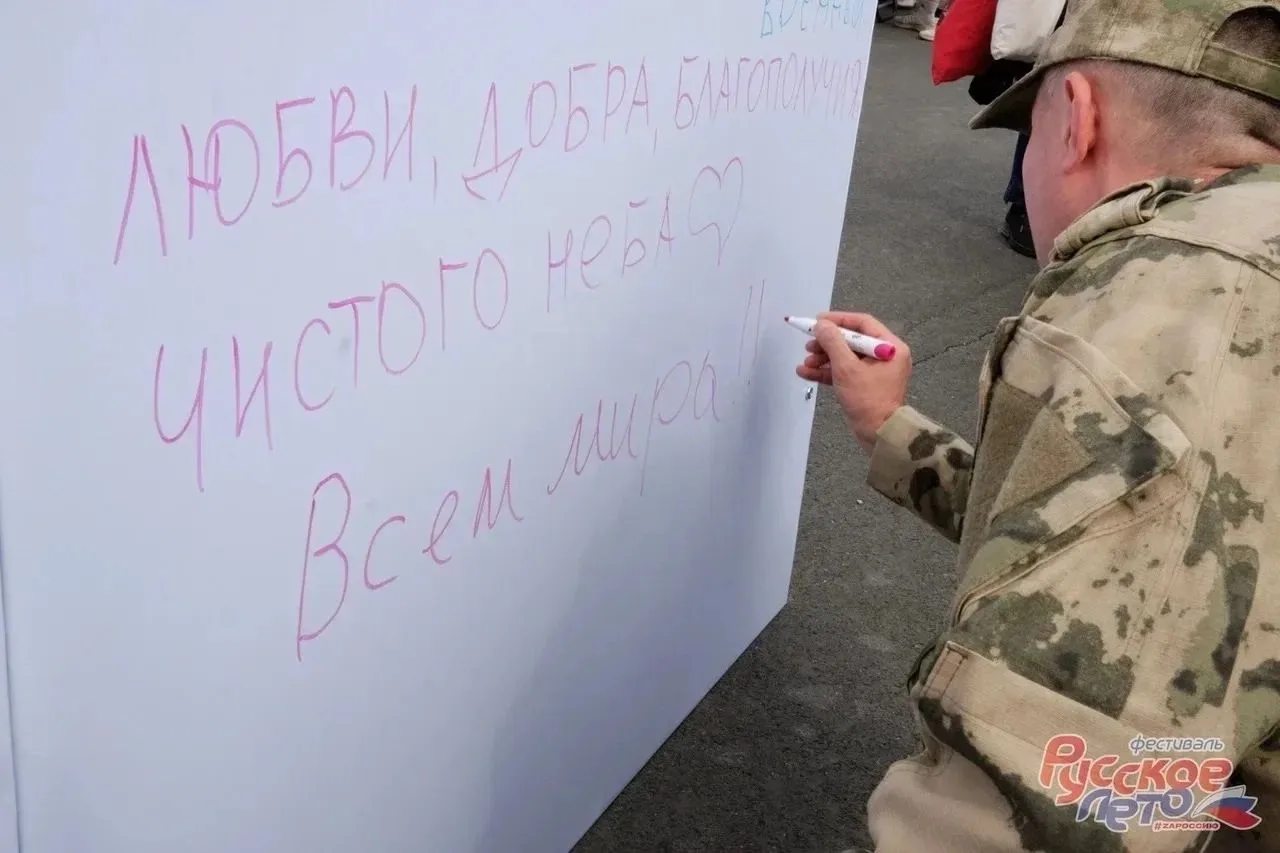 ЛЮБВИ, ДОБРА, БЛАГОПОЛУЧИЯ
ЧИСТОГО НЕБА
Всем мира!!
фестиваль
Русское
лето
#ZАРОССИЮ